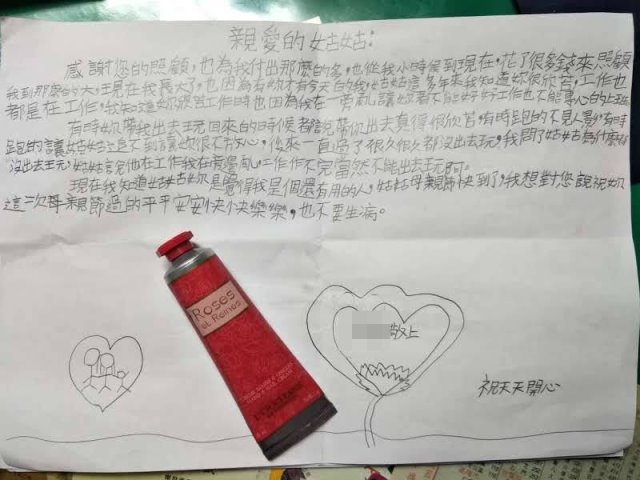 親愛的姑姑:
感謝您的照顧,也為我付出那麼的多,也從我小時侯到現在,花了很多錢來照顧
我到那麼的大,現在我長大了,也因為有妳才有今天的我,姑姑這多年來我知道妳很欣苦,工作也
都是在工作,我知道妳很苦工作時也因為我在一旁亂讓妳都不能好好工作也不能專心的上班
有時妳帶我出去玩回來的時候都說帶你出去真得很欣苦,有時跑的不見人影,有時
跑的讓姑姑追不到讓妳很不开心,後來一直過了很久很久都沒出去玩,我問了姑姑為什麼都
沒出去玩,姑姑說他在工作我在旁邊亂,工作作不完當然不能出去玩阿。
現在我知道姑姑妳是覺得我是個還有用的人,姑姑母親節快到了,我想對您說祝妳
這次母親節過的平平安安快快樂樂,也不要生病。
敬上
祝天天開心
Roses
et Reines
L'OCCITANE